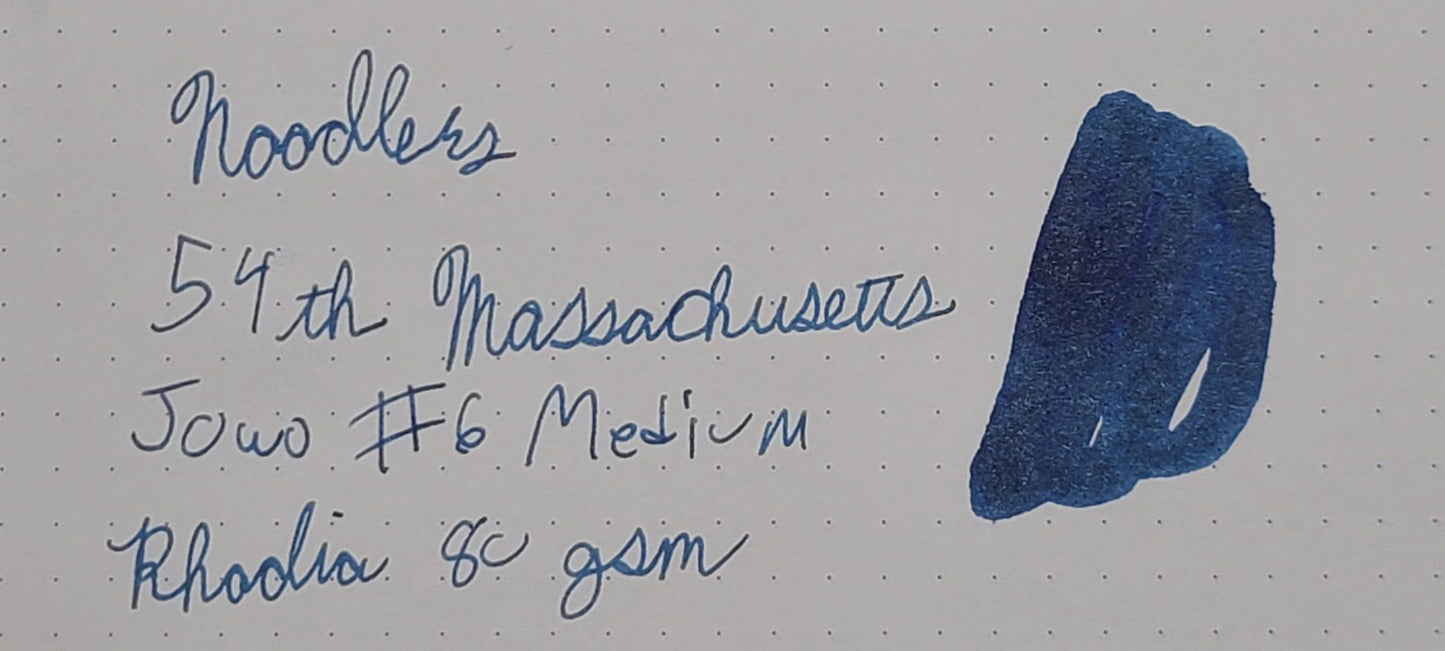 Noodlers
54th Massachusetts
Jowo #6 Medium
Rhodia 80 gsm